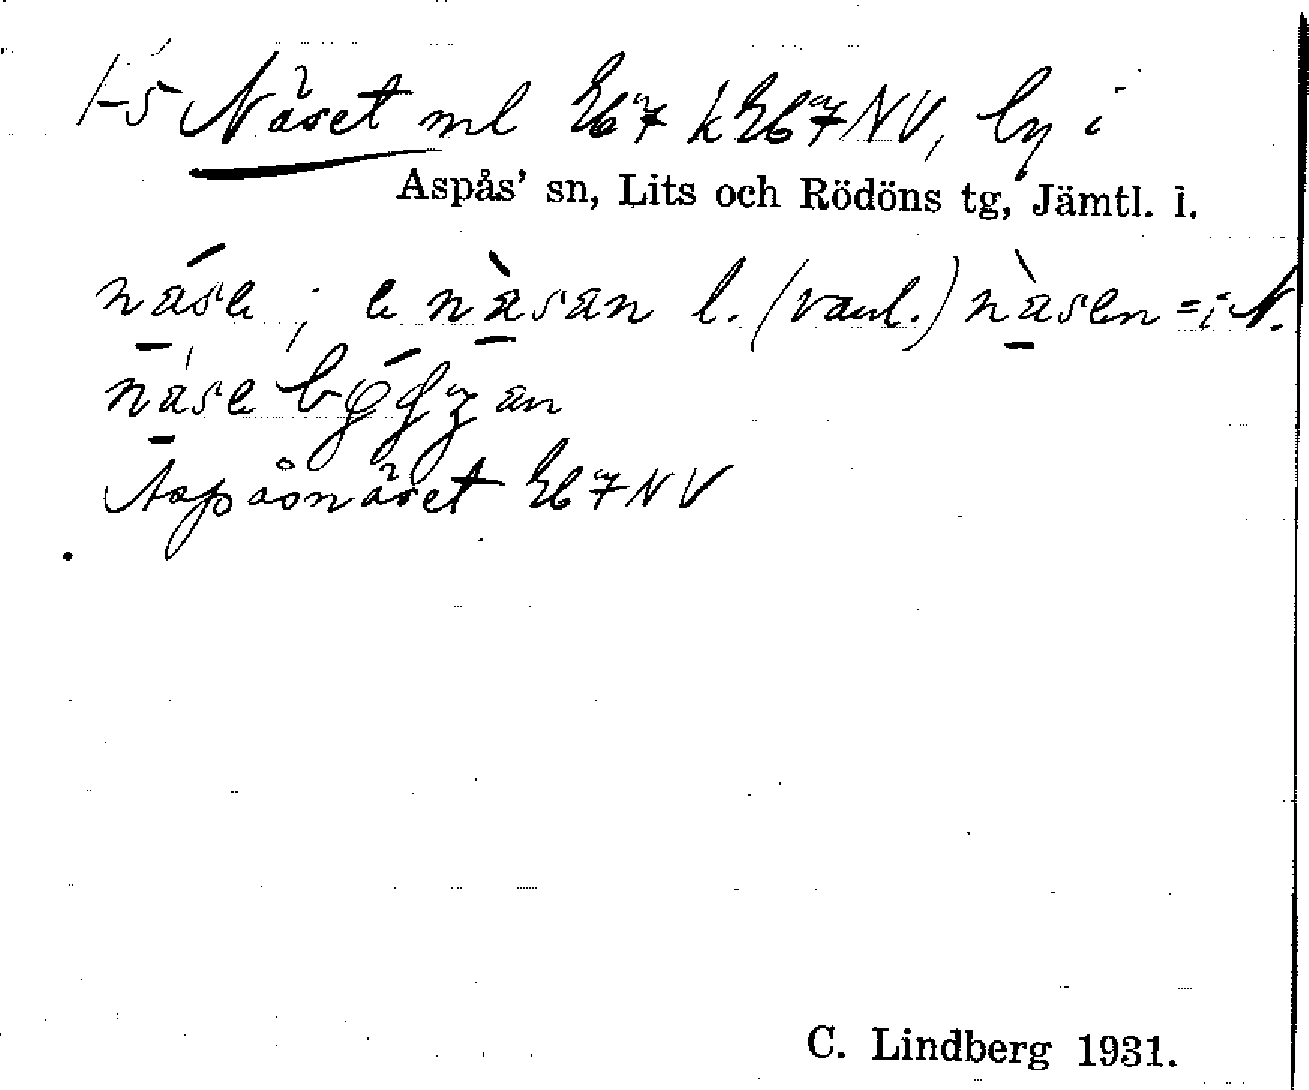 1-5 Näset ml Eb7 kEb7NV, by i
Aspås' sn, Lits och Rödöns tg, Jämtl. l.
nǽse ; e næ̀san l. (vanl.) næ̀sen = i N.
nǽse
Aspåsnäset Eb7NV
C. Lindberg 1931.